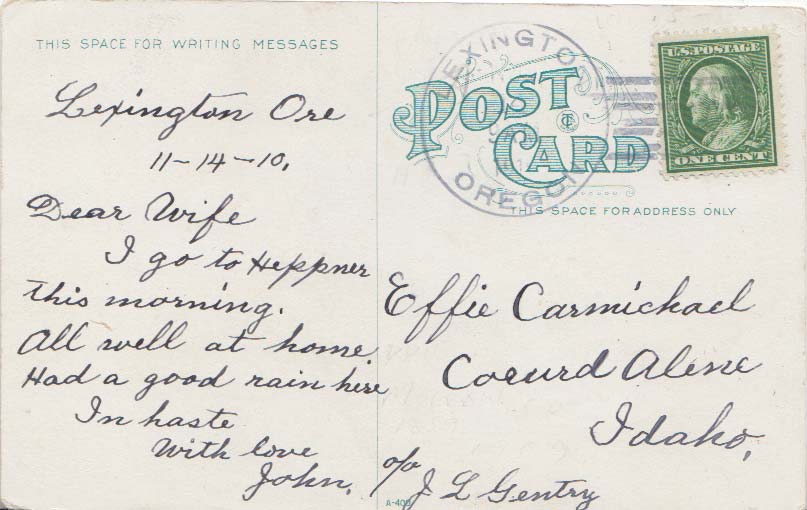 THIS SPACE FOR WRITING MESSAGES
Lexington Ore
11-14-10.
Dear Wife
I go to Heppner
this morning.
All well at home.
Had a good rain here
In haste
With love
John.
LEXINGTON
OREGON
POST
CARD
U.S. POSTAGE
ONE CENT
THIS SPACE FOR ADDRESS ONLY
Effie Carmichael
Coeurd Alene
Idaho,
c/o
J L Gentry